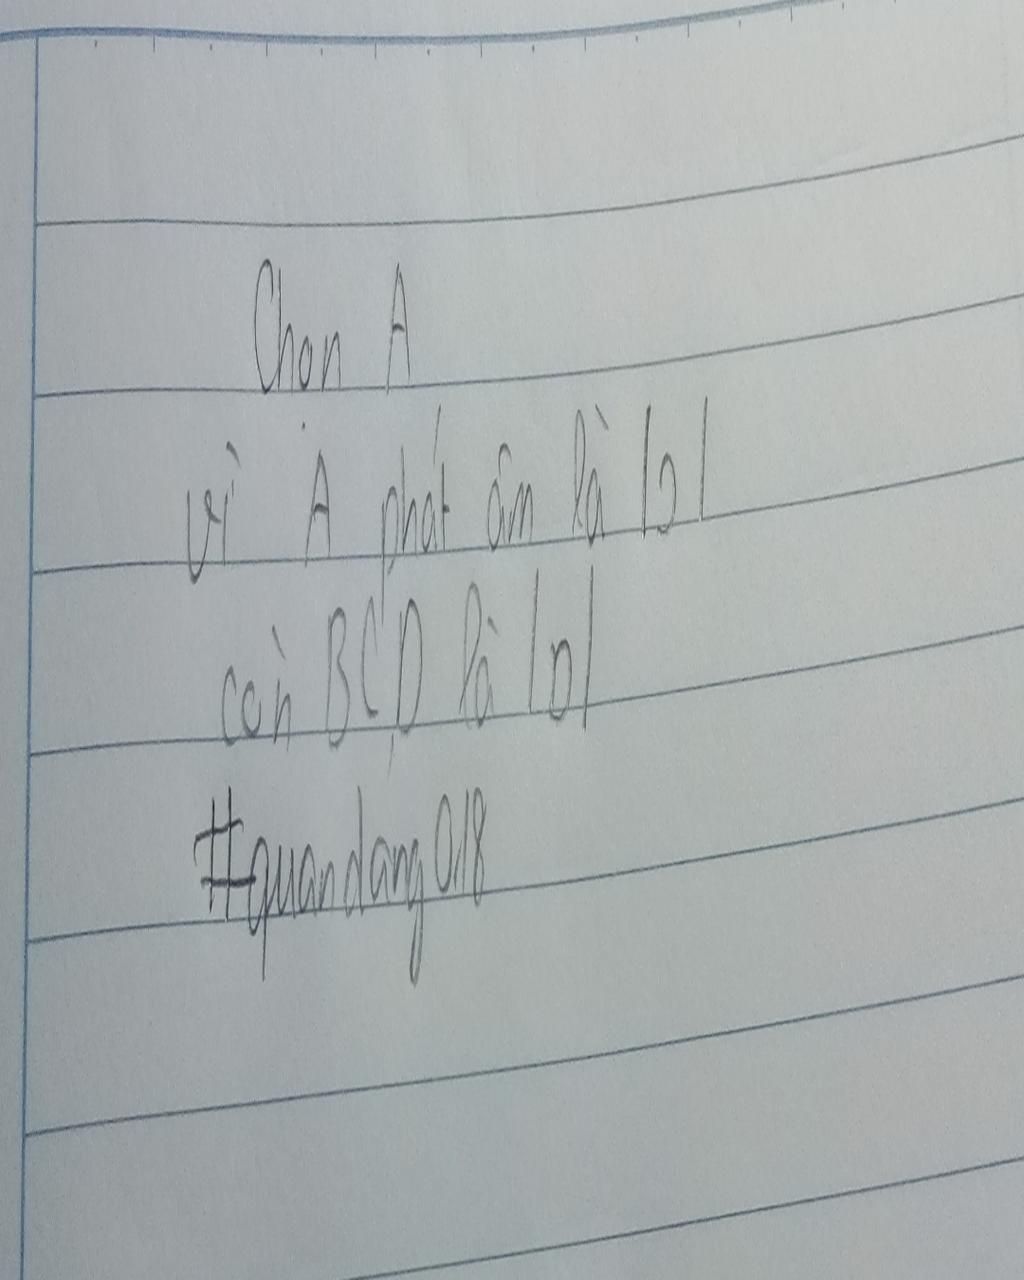 Chọn A
vì A phát âm là /ɔ/
còn B C D là /ɒ/
#quandang018